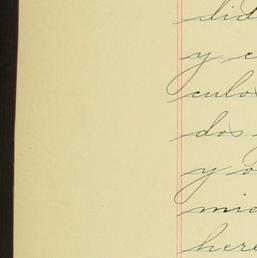 did
y c
culo
dos
y o
mie
here